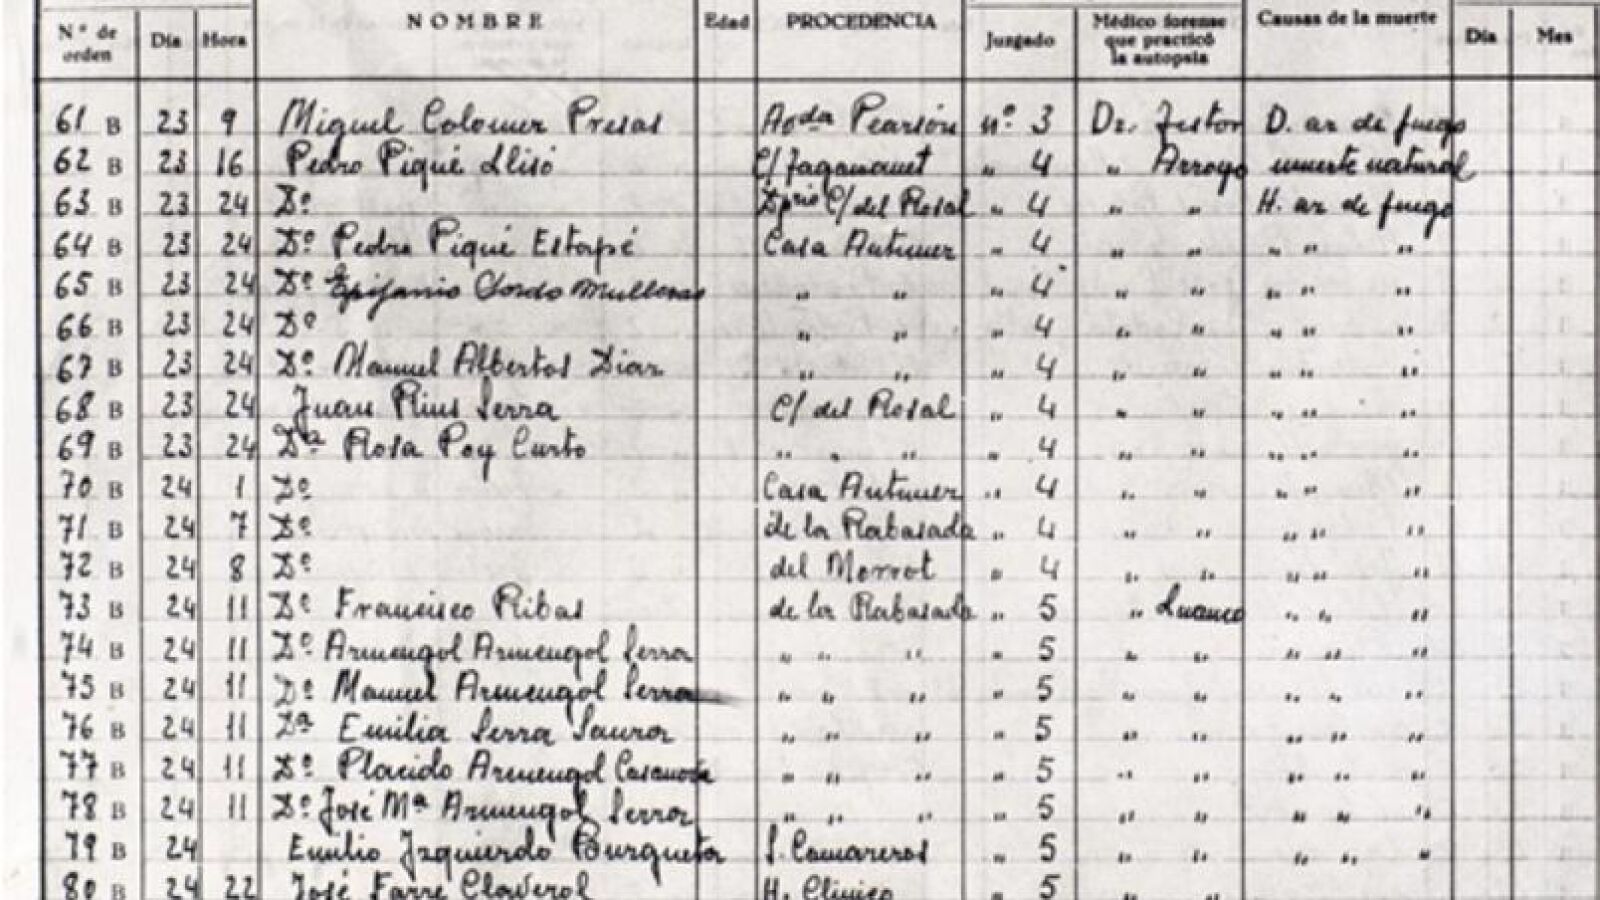 Nº de orden Día Hora NOMBRE Edad PROCEDENCIA Juzgado Médico forense que practicó la autopsia Causas de la muerte Día Mes
61 B 23 9 Miguel Colomer Presas Avda Pearsón nº 3 Dr. D. ar de fuego
62 B 23 16 Pedro Piqué Llisó C/ " 4 " Arroyo muerte natural
63 B 23 24 Dº C/ del Rosal " 4 " " H. ar de fuego
64 B 23 24 Dº Pedro Piqué Estorpé Casa Antunez " 4 " " " " "
65 B 23 24 Dº Epifanio Mulleras " " " 4 " " " " "
66 B 23 24 Dº " " " 4 " " " " "
67 B 23 24 Dº Manuel Albertos Diaz " " " 4 " " " " "
68 B 23 24 Juan Rius Serra C/ del Rosal " 4 " " " " "
69 B 23 24 Dª Rosa Poy Curto " " " " 4 " " " " "
70 B 24 1 Dº Casa Antunez " 4 " " " " "
71 B 24 7 Dº de la Rabasada " 4 " " " " "
72 B 24 8 Dº del Morrot " 4 " " " " "
73 B 24 11 Dº Francisco Ribas de la Rabasada " 5 " Luanco " " "
74 B 24 11 Dº Armengol Armengol Serra " " " " 5 " " " " "
75 B 24 11 Dº Manuel Armengol Serra " " " " 5 " " " " "
76 B 24 11 Dª Emilia Serra " " " " 5 " " " " "
77 B 24 11 Dº Placido Armengol Casanova " " " " 5 " " " " "
78 B 24 11 Dº José Mª Armengol Serra " " " " 5 " " " " "
79 B 24 Emilio Izquierdo Burgueta S. Camareros " 5 " " " " "
80 B 24 22 José Farré Claverol H. Clínico " 5 " "